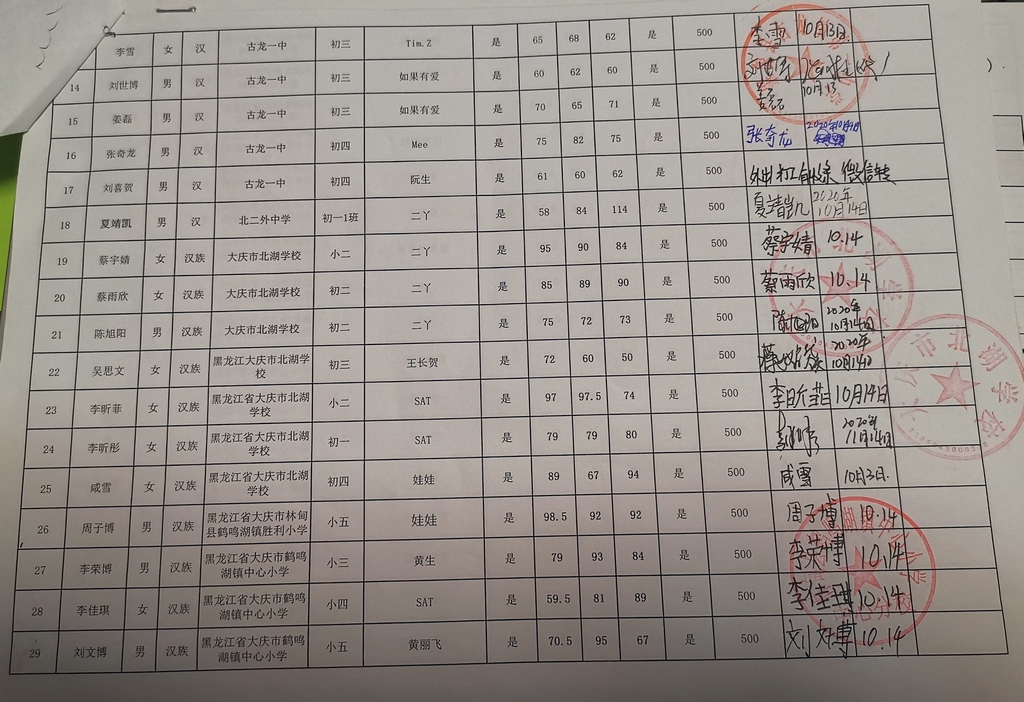 李雪 女 汉 古龙一中 初三 Tim.Z 是 65 68 62 是 500 李雪 10月13日
14 刘世博 男 汉 古龙一中 初三 如果有爱 是 60 62 60 是 500
15 姜磊 男 汉 古龙一中 初三 如果有爱 是 70 65 71 是 500 姜磊 10月13
16 张奇龙 男 汉 古龙一中 初四 Mee 是 75 82 75 是 500 张奇龙 2020年10月14日
17 刘喜贺 男 汉 古龙一中 初四 阮生 是 61 60 62 是 500 微信转
18 夏靖凯 男 汉 北二外中学 初一1班 二丫 是 58 84 114 是 500 夏靖凯 2020年10月14日
19 蔡宇婧 女 汉族 大庆市北湖学校 小二 二丫 是 95 90 84 是 500 蔡宇婧 10.14
20 蔡雨欣 女 汉族 大庆市北湖学校 初二 二丫 是 85 89 90 是 500 蔡雨欣 10.14
21 陈旭阳 男 汉族 大庆市北湖学校 初二 二丫 是 75 72 73 是 500 陈旭阳 2020年10月14日
22 吴思文 女 汉族 黑龙江大庆市北湖学校 初三 王长贺 是 72 60 50 是 500 2020年10月14日
23 李昕菲 女 汉族 黑龙江省大庆市北湖学校 小二 SAT 是 97 97.5 74 是 500 李昕菲 10月14日
24 李昕彤 女 汉族 黑龙江省大庆市北湖学校 初一 SAT 是 79 79 80 是 500 2020年11月14日
25 咸雪 女 汉族 黑龙江省大庆市北湖学校 初四 娃娃 是 89 67 94 是 500 咸雪 10月13日.
26 周子博 男 汉族 黑龙江省大庆市林甸县鹤鸣湖镇胜利小学 小五 娃娃 是 98.5 92 92 是 500 周子博 10.14
27 李荣博 男 汉族 黑龙江省大庆市鹤鸣湖镇中心小学 小三 黄生 是 79 93 84 是 500 李荣博 10.14
28 李佳琪 女 汉族 黑龙江省大庆市鹤鸣湖镇中心小学 小四 SAT 是 59.5 81 89 是 500 李佳琪 10.14
29 刘文博 男 汉族 黑龙江省大庆市鹤鸣湖镇中心小学 小五 黄丽飞 是 70.5 95 67 是 500 刘文博 10.14